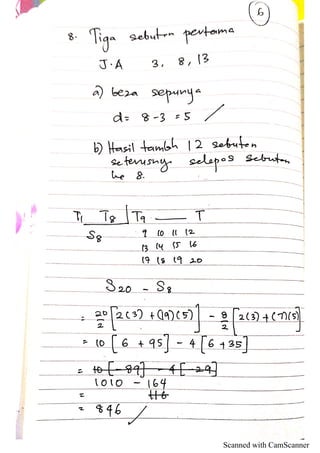 6
8. Tiga sebutan pertama
J.A 3, 8, 13
a) beza sepunya
d= 8-3 = 5
b) Hasil tambah 12 sebutan
seterusnya selepas sebutan
ke 8.
T₁ T₈ | T₉ — T
S₈ 9 10 11 12
13 14 15 16
17 18 19 20
S₂₀ - S₈
= 20/2 [2(3) + (19)(5)] - 8/2 [2(3) + (7)(5)]
= 10 [6 + 95] - 4 [6 + 35]
= 10 [-89] - 4 [-29]
1010 - 164
= 116
= 846
Scanned with CamScanner